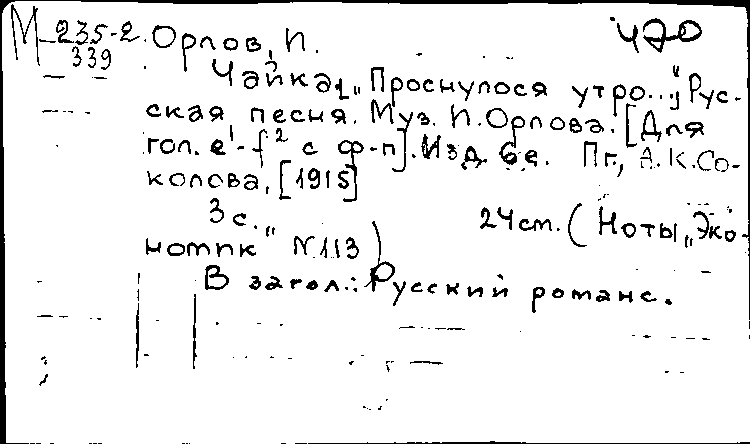 М 235-2. Орлов, И. 420
339
Чайка „Проснулося утро...“ Рус-
ская песня. Муз. И. Орлова. [Для
гол. e¹-f² с ф-п]. Изд. 6е. Пг., А. К. Со-
колова, [1915]
3 с. 24 см. (Ноты „Эко-
номпик“ N 113)
В загол.: Русский романс.